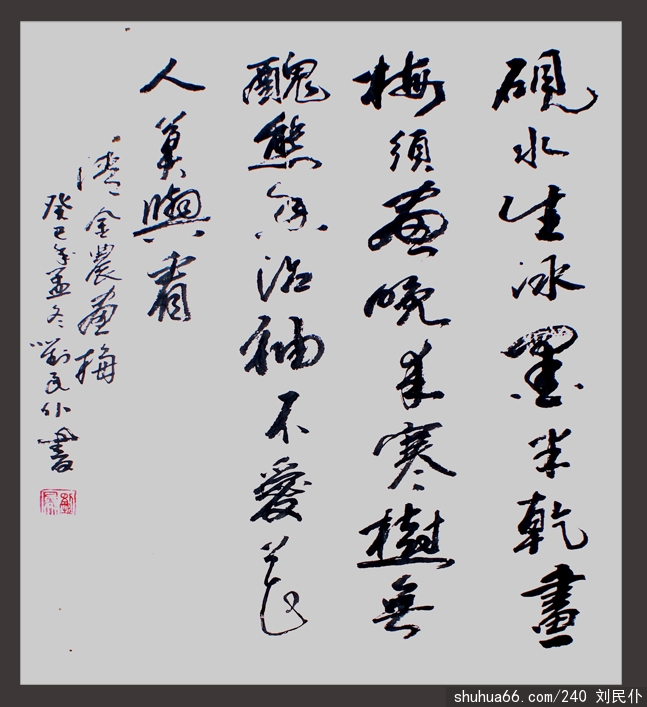 硯水生冰墨半乾畫
梅須畫晚來寒樹無
醜態香沾袖不愛花
人莫與看
清金農畫梅
癸巳年孟冬劉民仆書
shuhua66.com/240 刘民仆